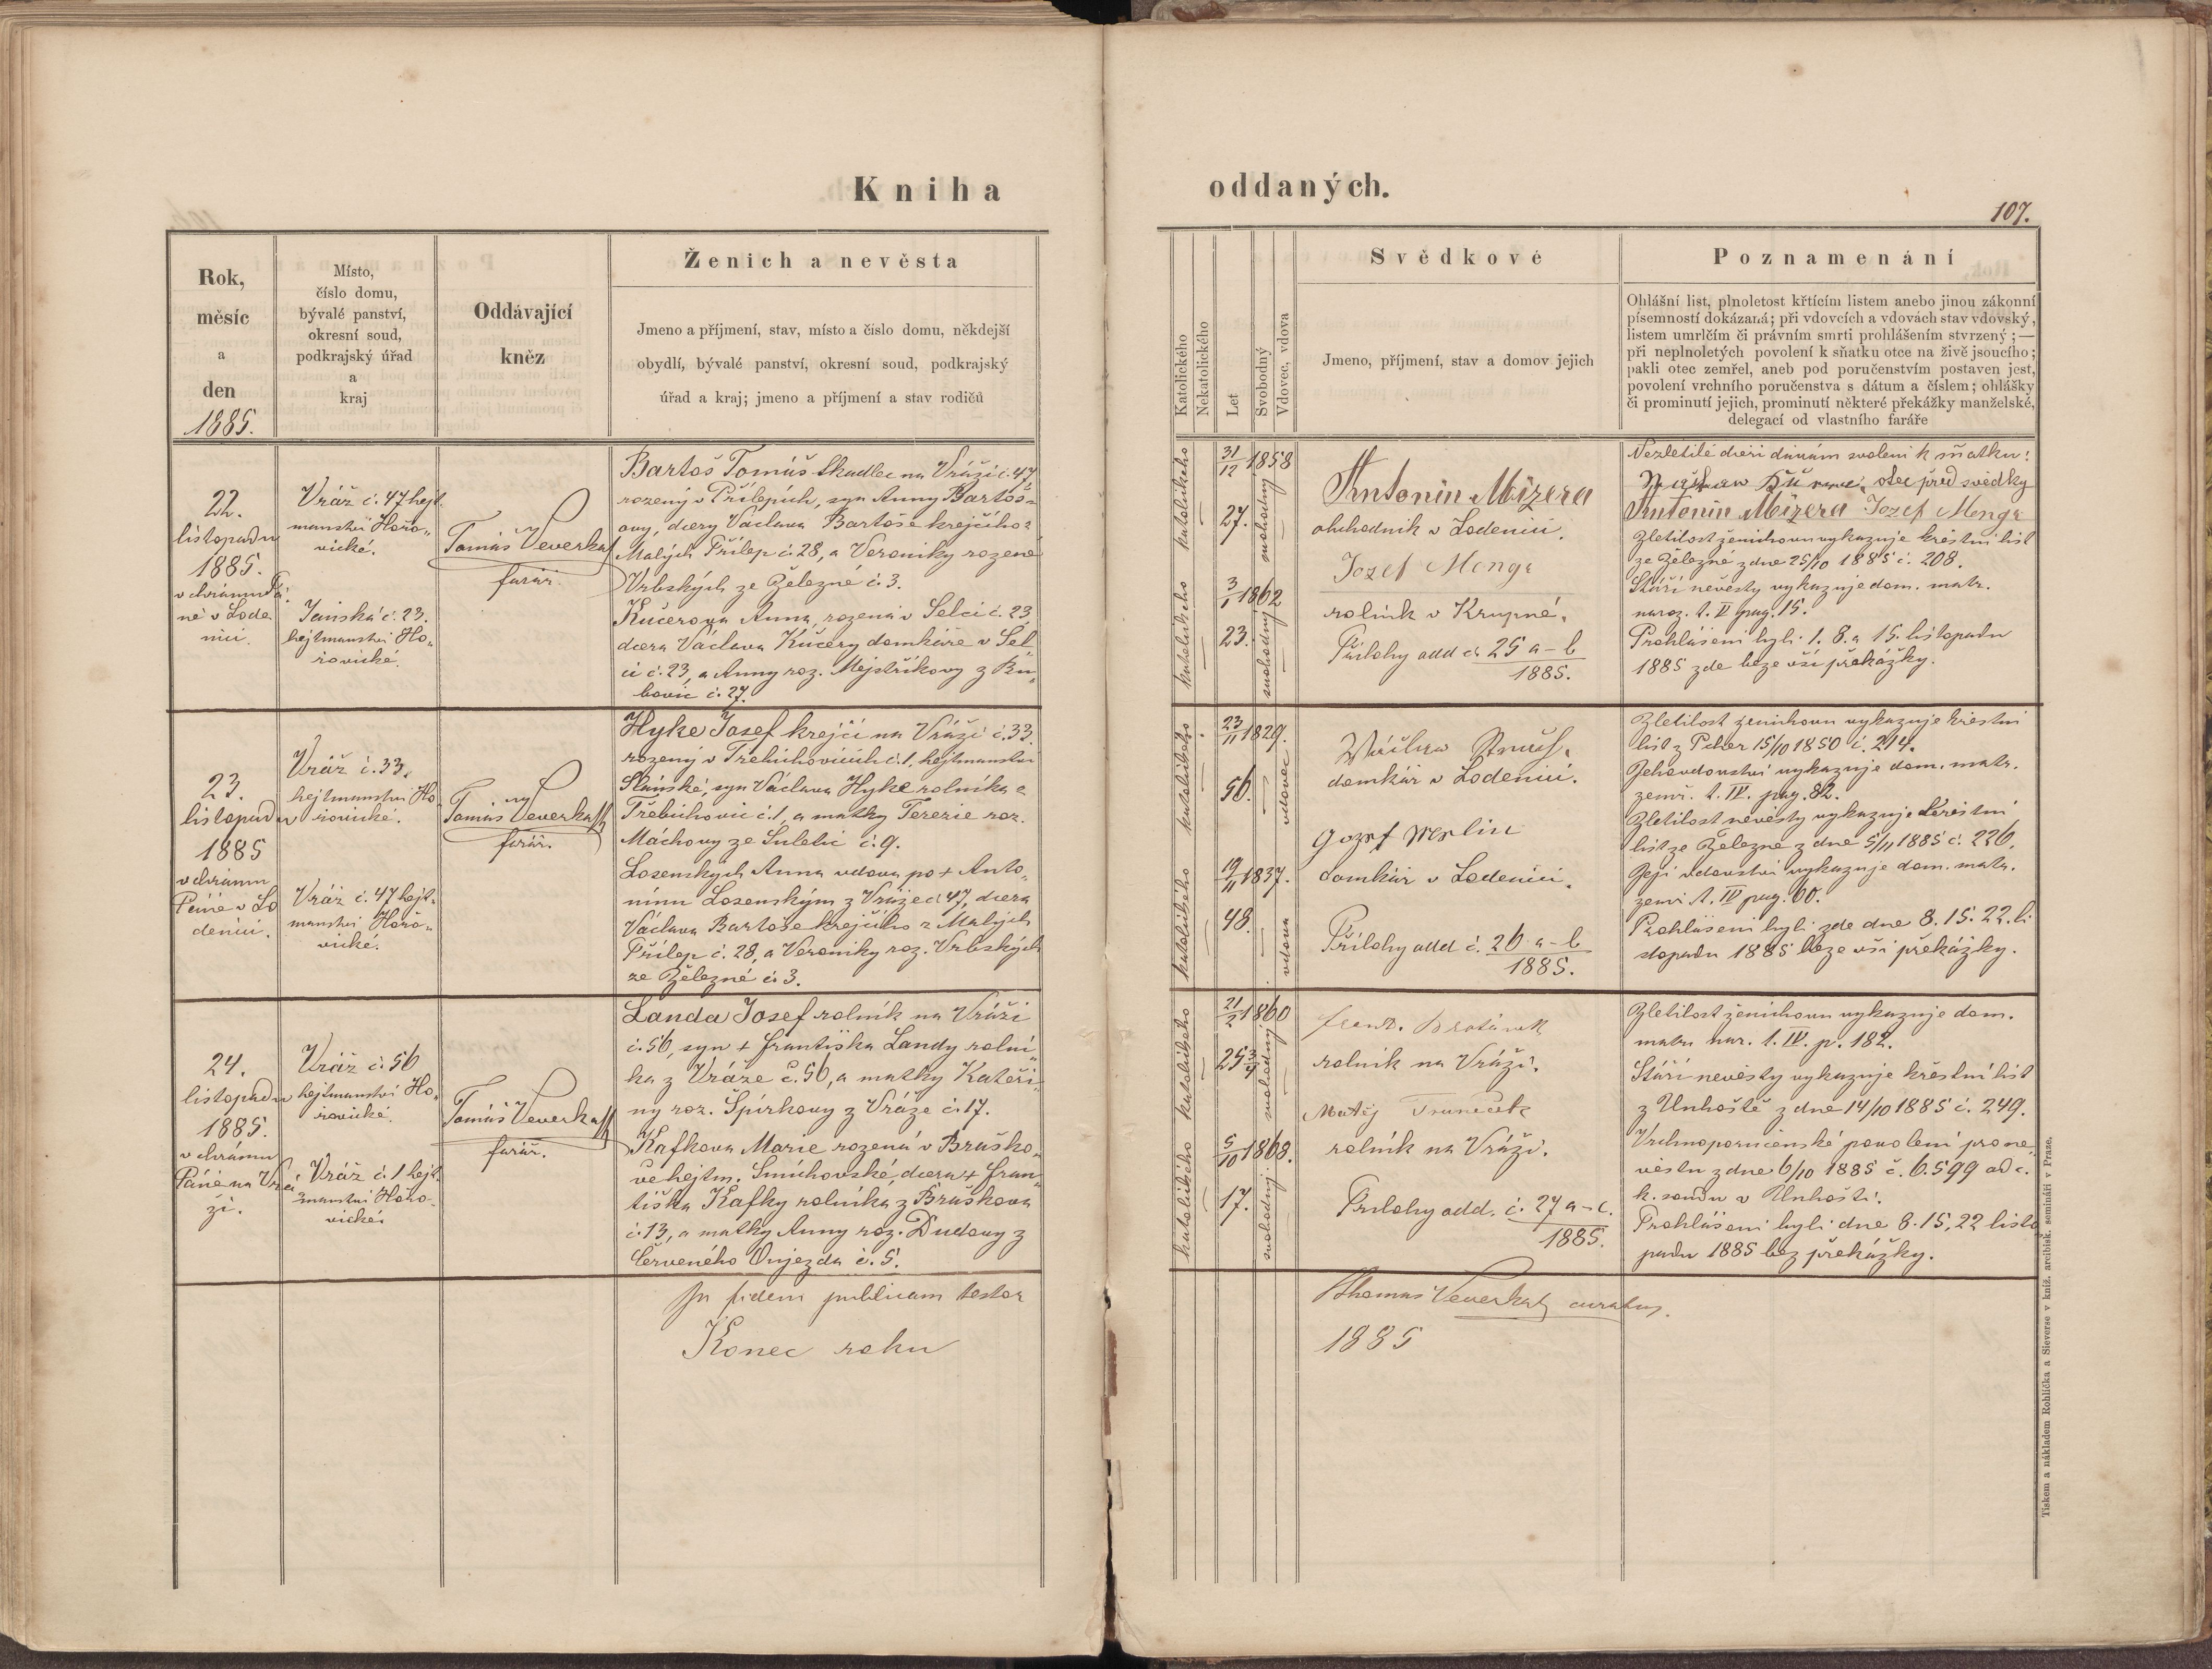 Kniha
oddaných.
107.
Rok,
měsíc
a
den
1885.
Místo,
číslo domu,
bývalé panství,
okresní soud,
podkrajský úřad
a
kraj
Oddávající
kněz
Ženich a nevěsta
Jmeno a příjmení, stav, místo a číslo domu, někdejší
obydlí, bývalé panství, okresní soud, podkrajský
úřad a kraj; jmeno a příjmení a stav rodičů
Katolického
Nekatolického
Let
Svobodný
Vdovec, vdova
Svědkové
Jmeno, příjmení, stav a domov jejich
Poznamenání
Ohlášní list, plnoletost křtícím listem anebo jinou zákonní
písemností dokázaná; při vdovcích a vdovách stav vdovský,
listem umrlčím či právním smrti prohlášením stvrzený; —
při neplnoletých povolení k sňatku otce na živě jsoucího;
pakli otec zemřel, aneb pod poručenstvím postaven jest,
povolení vrchního poručenstva s dátum a číslem; ohlášky
či prominutí jejich, prominutí některé překážky manželské,
delegací od vlastního faráře
22.
listopadu
1885.
v chrámu Pá-
ně v Lode
nici.
Vráž č. 47 hejt
manství Hořo„
vické.
Jánská č. 23.
hejtmanství Ho„
řovické.
Tomáš Veverka
farář.
Bartoš Tomáš tkadlec na Vráži č. 47
rozený v Přílepích, syn Anny Bartoš=
ovy, dcery Václava Bartoše krejčího z
Malých Přílep č. 28, a Veroniky rozené
Vrbských ze Železné č. 3.
Kučerova Anna, rozená v Selci č. 23,
dcera Václava Kučery domkáře v Sel
ci č. 23, a Anny roz. Mejstříkovy z Bu„
bovic č. 27.
katolického
31/12 1858
27.
svobodný
katolického
3/1 1862
23.
svobodný
Antonín Mizera
obchodník v Lodenici.
Jozef Menge
rolník v Krupné.
Přílohy add č. 25 a-b
1885.
Nezletilé dceři dávám svolení k sňatku:
otec před svědky
Antonín Mizera Jozef Menge
Zletilost ženichovu vykazuje křestní list
ze Železné z dne 25/10 1885 č. 208.
Stáří nevěsty vykazuje dom. matr.
naroz. t. V pag. 15.
Prohlášeni byli 1. 8. a 15. listopadu
1885 zde beze vší překážky.
23.
listopadu
1885
v chrámu
Páně v Lo
děnici.
Vráž č. 33.
hejtmanství Ho
řovické.
Vráž č. 47 hejt.
manství Hořo„
vické.
Tomáš Veverka
farář.
Hyke Josef krejčí na Vráži č. 33.
rozený v Třebichovicích č. 1, hejtmanství
Slánské, syn Václava Hyke rolníka z
Třebichovic č. 1, a matky Terezie roz.
Máchovy ze Suletic č. 9.
Losenských Anna vdova po + Anto„
nínu Losenským z Vráže č. 47, dcera
Václava Bartoše krejčího z Malých
Přílep č. 28, a Veroniky roz. Vrbských
ze Železné č. 3.
katolického
23/11 1829.
56.
vdovec
katolického
19/11 1837.
48.
vdova
Václav
domkář v Lodenici.
Jozef Merlin
domkář v Lodenici.
Přílohy add č. 26 a-b
1885.
Zletilost ženichovu vykazuje křestní
list z Pcher 15/10 1850 č. 214.
Jeho vdovství vykazuje dom. matr.
zemř. t. IV. pag. 82.
Zletilost nevěsty vykazuje křestní
list ze Železné z dne 5/11 1885 č. 226.
Její vdovství vykazuje dom. matr.
zemř. t. IV pag. 60.
Prohlášeni byli zde dne 8. 15. 22. li
stopadu 1885 beze vší překážky.
24.
listopadu
1885.
v chrámu
Páně na Vrá
ži.
Vráž č. 56
hejtmanství Ho„
řovické.
Vráž č. 1 hejt.
manství Hořo-
vické.
Tomáš Veverka
farář.
Landa Josef rolník na Vráži
č. 56, syn + Františka Landy rolní„
ka z Vráže č. 56, a matky Kateři
ny roz. Špirkovy z Vráže č. 17.
Kafkova Marie rozená v Braško„
vě hejtm. Smíchovské, dcera + Fran„
tiška Kafky rolníka z Braškova
č. 13, a matky Anny roz. Dudovy z
Červeného Oujezda č. 5.
katolického
21/2 1860
25 3/4
svobodný
katolického
5/10 1868.
17.
svobodný
rolník na Vráži.
Matěj Truneček
rolník na Vráži.
Přílohy add. č. 27 a-c.
1885.
Zletilost ženichovu vykazuje dom.
matr. nar. t. IV. p. 182.
Stáří nevěsty vykazuje křestní list
z Unhoště z dne 14/10 1885 č. 249.
Vrchnoporučenské povolení pro ne„
věstu z dne 6/10 1885 č. 6.599 od c.
k. soudu v Unhošti.
Prohlášeni byli dne 8. 15, 22 listo
padu 1885 bez překážky.
In fidem publicam testor
Thomas Veverka curatus.
Konec roku
1885
Tiskem a nákladem Rohlíčka a Sieverse v kníž. arcibisk. semináři v Praze.